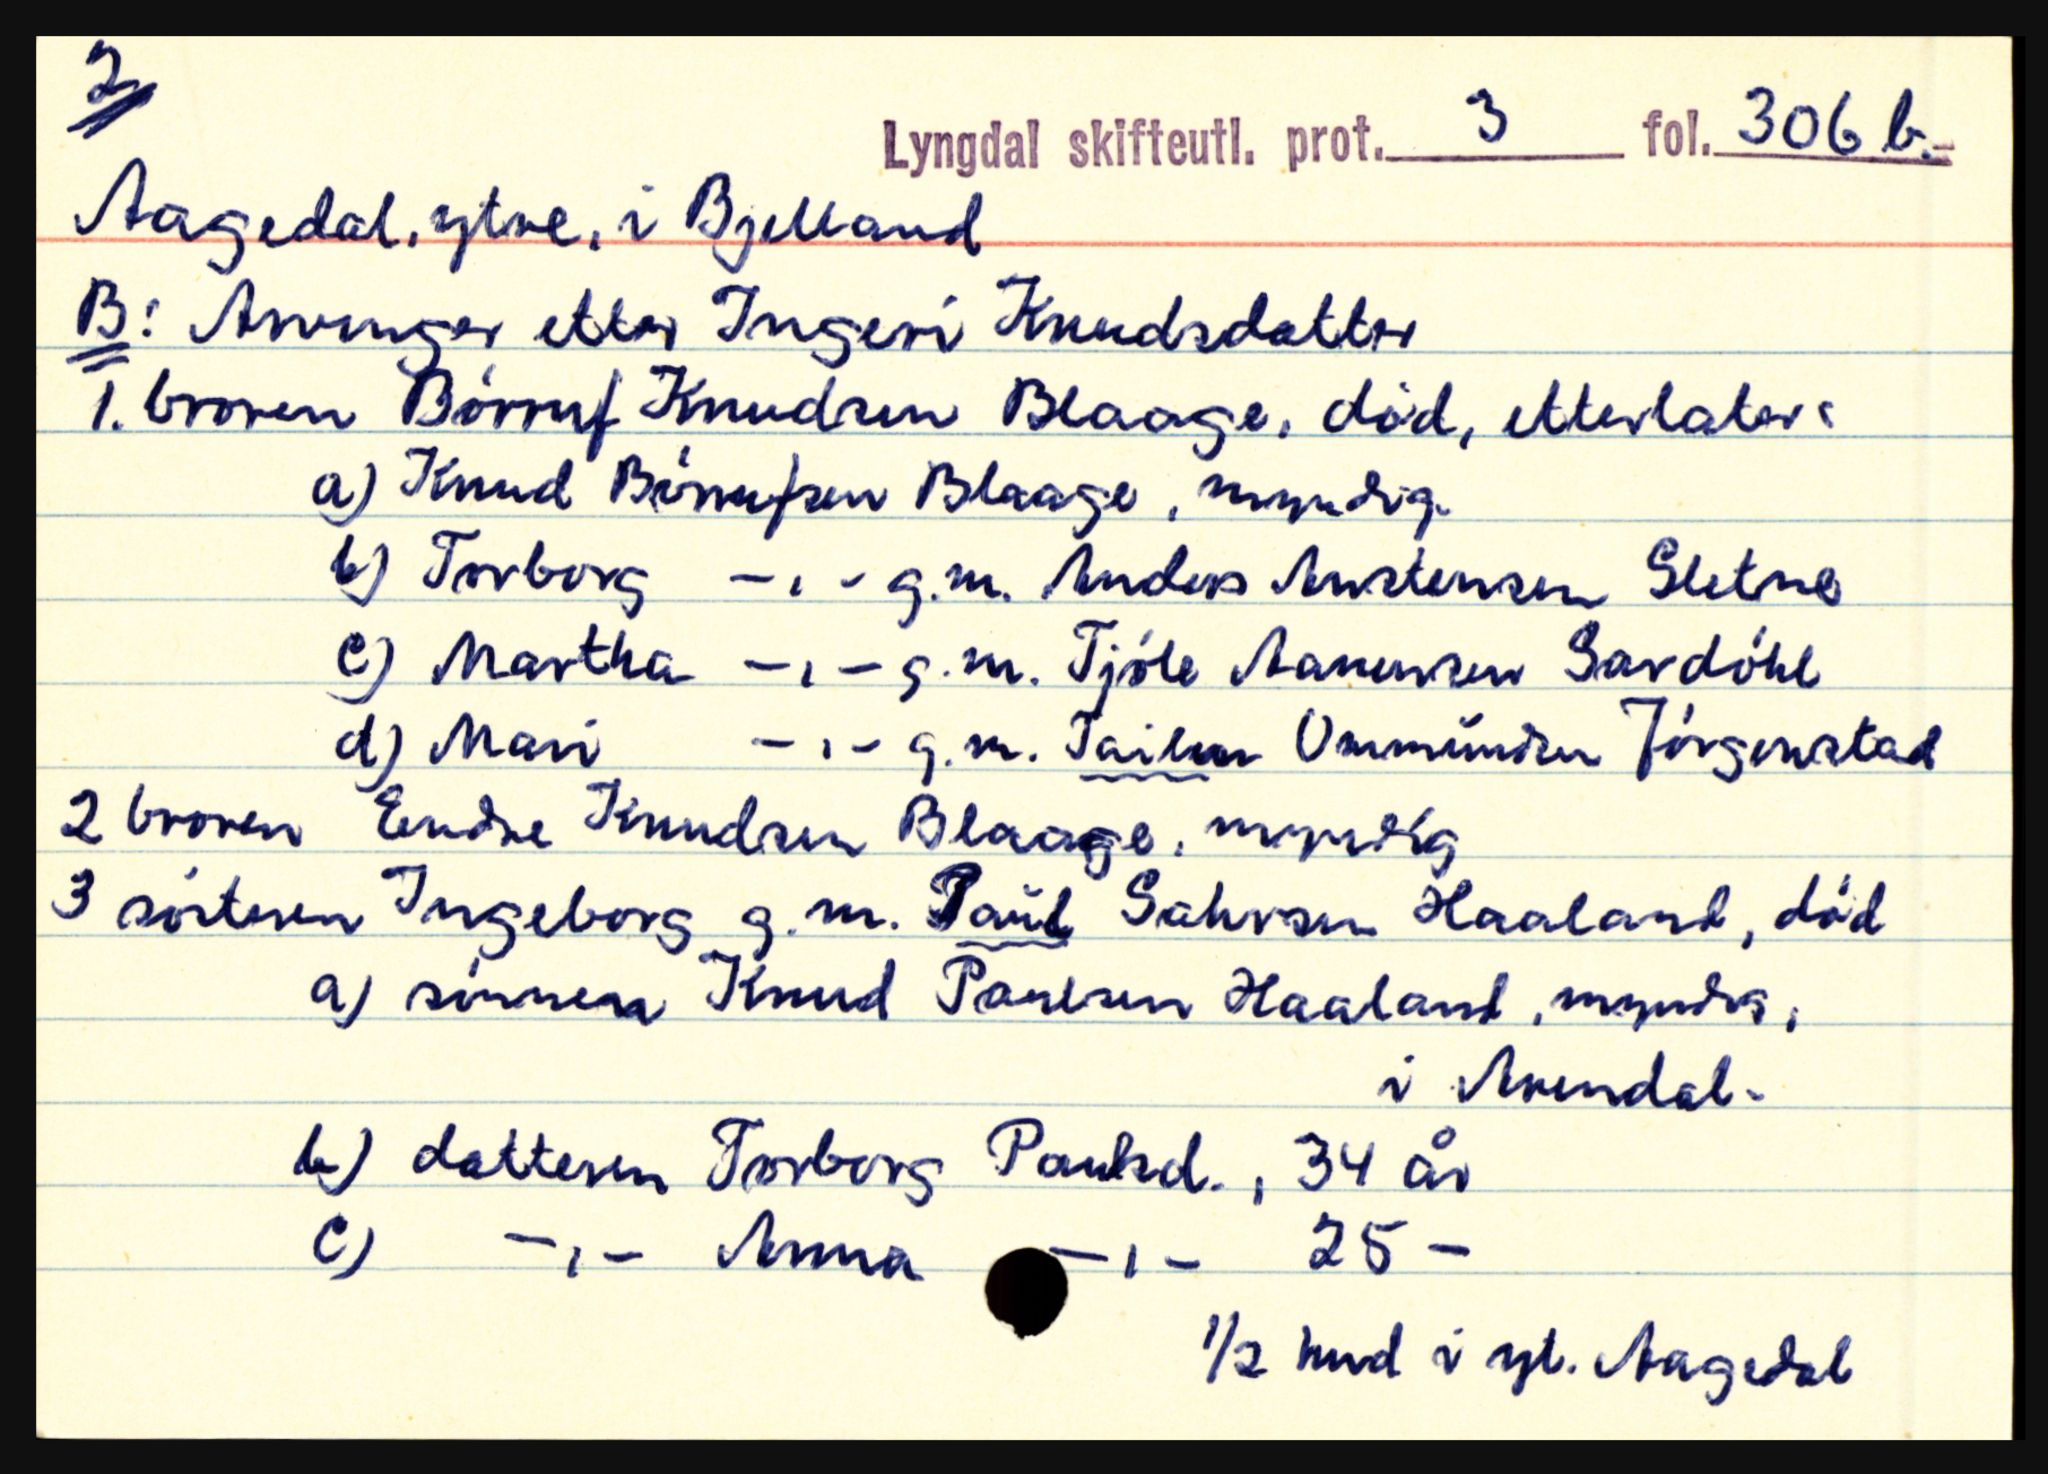 2
Lyngdal skifteutl. prot. 3 fol. 306 b.-
Aagedal, ytre, i Bjelland
B: Arvinger etter Ingeri Knudsdatter
1. broren Børruf Knudsen Blaage, død, etterlater:
a) Knud Børrufsen Blaage, myndig.
b) Torborg -,- g.m. Anders Austensen Sletne
c) Martha -,- g.m. Tjøle Aanensen Gardøhl
d) Mari -,- g.m. Ommundsen Jørgenstad
2 broren Endre Knudsen Blaage, myndig
3 søsteren Ingeborg g.m. Paul Salvesen Haaland, død
a) sønnen Knud Paulsen Haaland, myndig,
i Arendal.
b) datteren Torborg Paulsd., 34 år
c) -,- Anna -,- 25 -
1/2 hud i yt. Aagedal